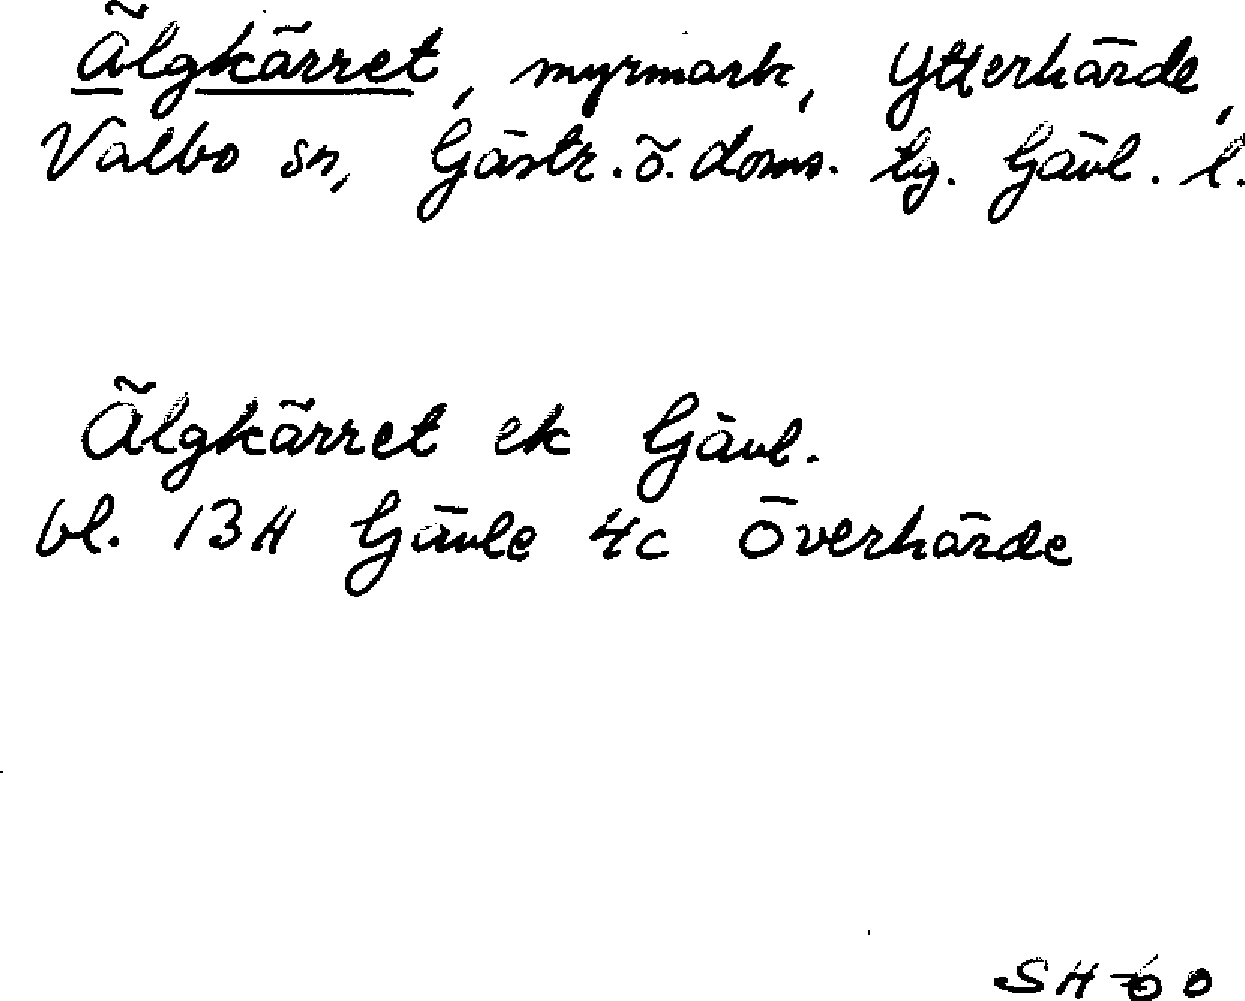 Älgkärret, myrmark, Ytterhärde,
Valbo sn, Gästr. ö. doms. tg. Gävl. l.
Älgkärret ek Gävl.
bl. 13H Gävle 4c Överhärde
SH-60